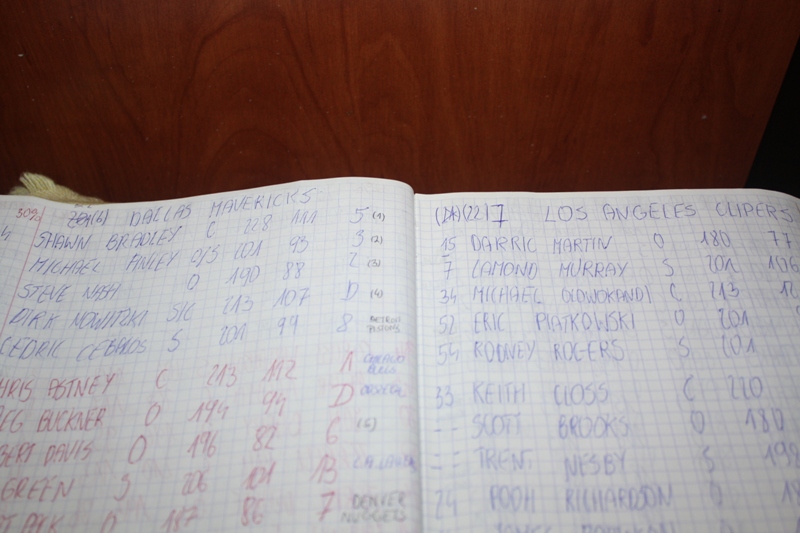 30% (6) DALLAS MAVERICKS
SHAWN BRADLEY C 228 111 5 (1)
MICHAEL FINLEY O/S 201 93 3 (2)
STEVE NASH O 190 88 2 (3)
DIRK NOWITZKI S/C 213 107 D (4)
CEDRIC CEBALLOS S 201 99 8 DETROIT PISTONS
HRIS ASTNEY C 213 112 1
EG BUCKNER O 194 94 D
BERT DAVIS O 196 82 6 (5)
GREEN S 206 101 13 LA LAKERS
O 187 86 7 DENVER NUGGETS
(DA)(22)7 LOS ANGELES CLIPERS
15 DARRIC MARTIN O 180 77
7 LAMOND MURRAY S 201 106
34 MICHAEL OLOWOKANDI C 213 12
52 ERIC PIATKOWSKI O 201
54 RODNEY ROGERS S 201
33 KEITH CLOSS C 220
-- SCOTT BROOKS O 180
-- TRENT NESBY S 198
24 POOH RICHARDSON O 18
JAMES